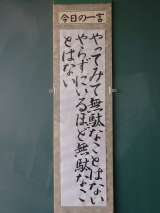 今日の一言
やってみて無駄なことはない
やらずにいるほど無駄なこ
とはない